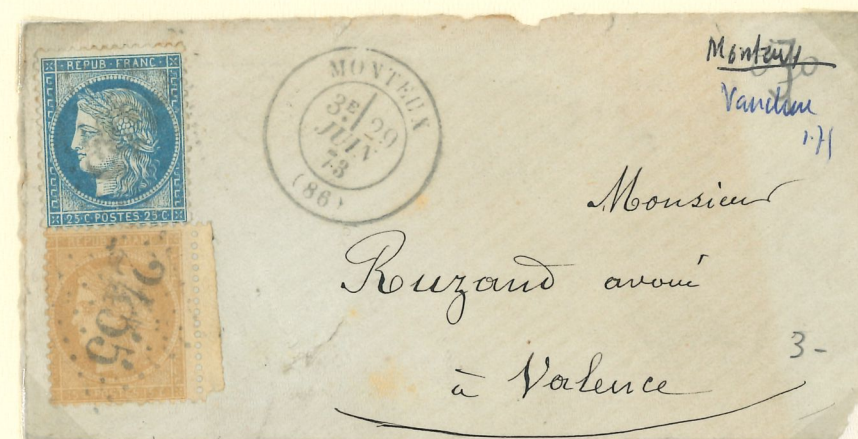 REPUB · FRANC ·
25·C·POSTES·25·C
2455
MONTEUX
3E 29
JUIN
73
(86)
Monteux
Vaucluse
Monsieur
Ruzand avoué
à Valence
3-